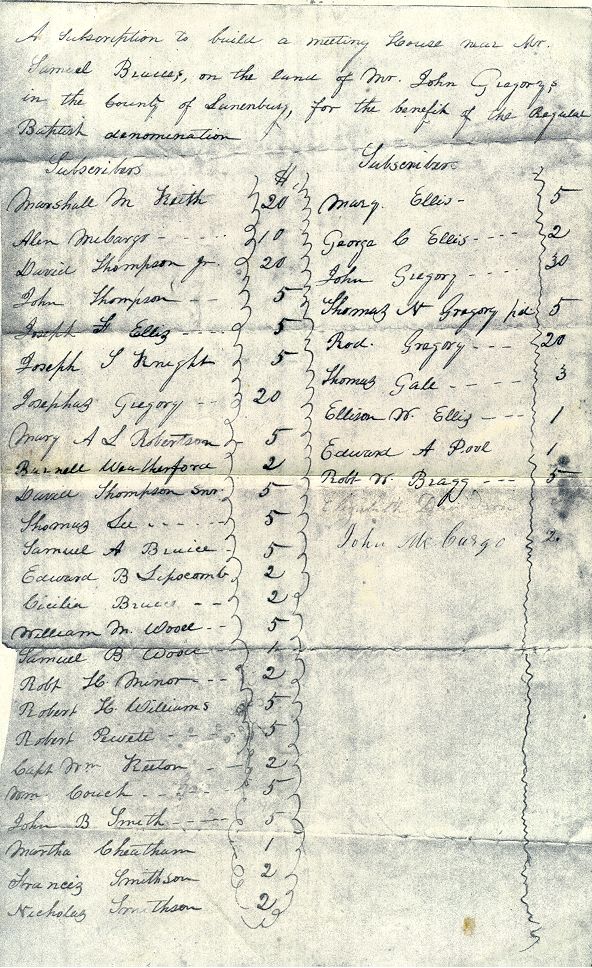 A Subscription to build a meeting House near Mr.
Samuel Bruices, on the land of Mr. John Gregorys
in the County of Lunenburg, for the benefit of the Regular
Baptist denomination
Subscribers $
Marshall M Keith 20
Alen McCargo 10
David Thompson Jr. 20
John Thompson 5
Joseph F Ellis 5
Joseph S Knight 5
Josephas Gregory 20
Mary A L Robertson 5
Burnell Weatherford 2
David Thompson Snr. 5
Thomas Lee 5
Samuel A Bruice 5
Edward B Lipscomb 2
Cicilia Bruice 2
William M. Wood 5
Samuel B Wood
Robt H. Minor 2
Robert H. Williams 5
Robert 5
Capt Wm Keeton 2
Wm. Couch 5
John B Smith 5
Martha Cheatham 1
Francis Smithson 2
Nicholas Smithson 2
Subscribers
Mary. Ellis 5
George C Ellis 2
John Gregory 30
Thomas N Gregory pd 5
Rod. Gregory 20
Thomas Gale 3
Ellison W. Ellis 1
Edward A Pool 1
Robt W. Bragg 5
Elizabeth
John McCargo 2